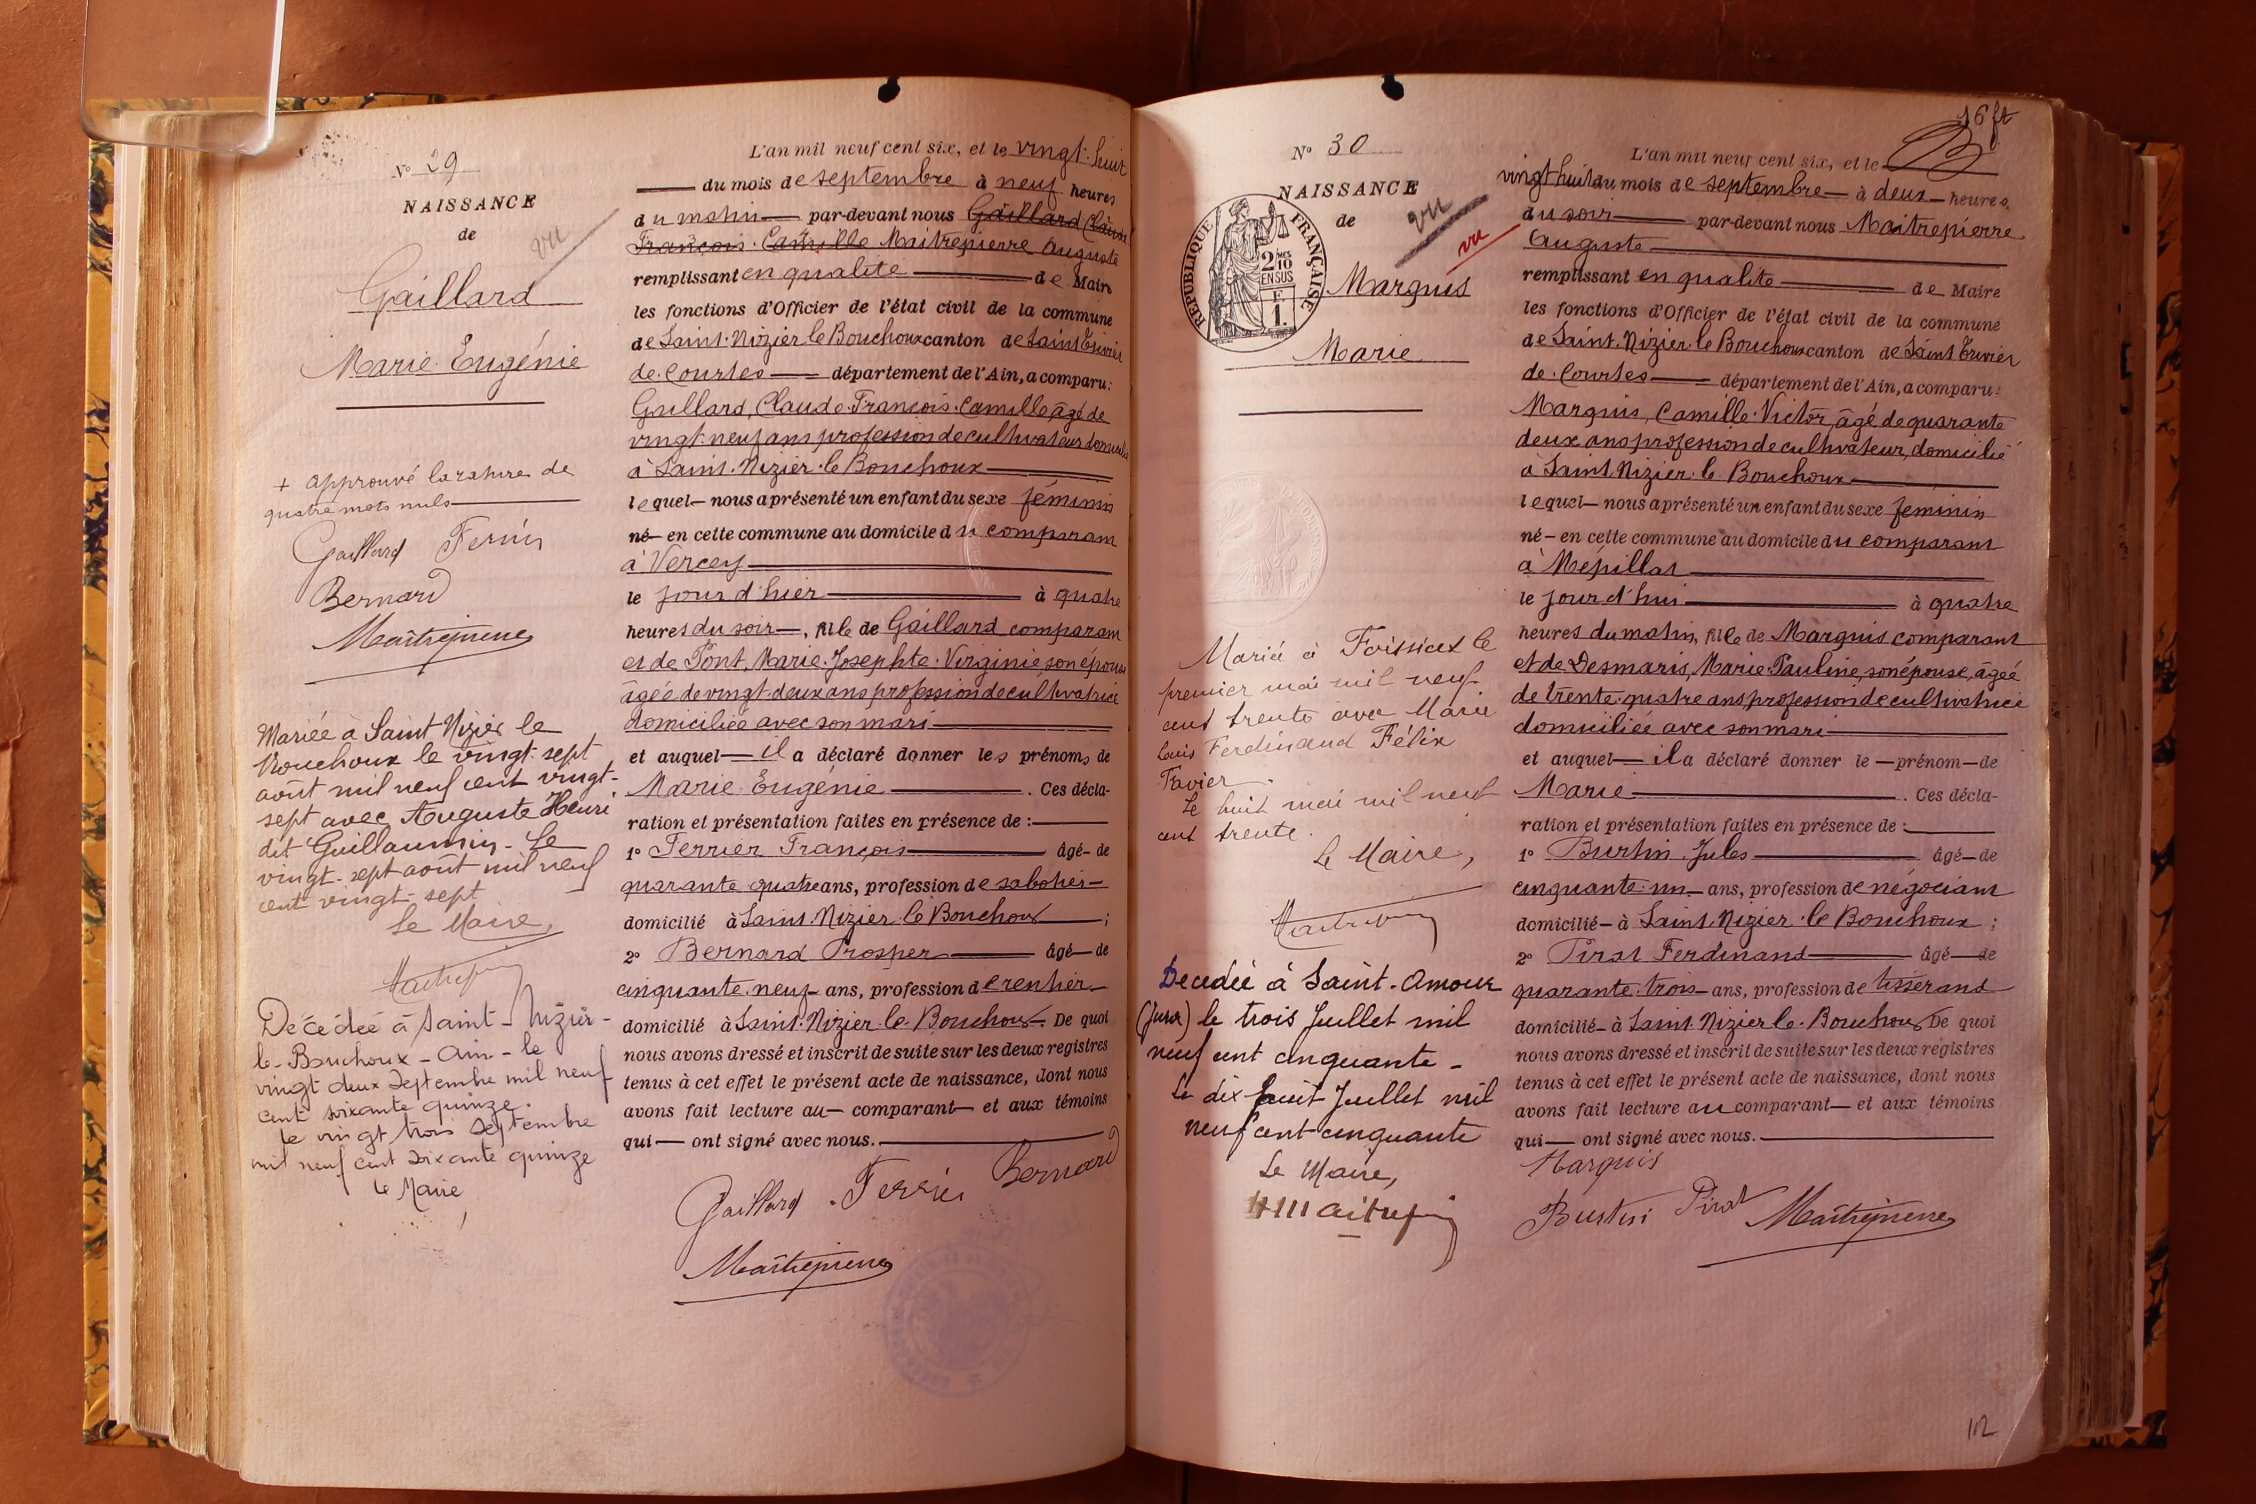 N° 29
NAISSANCE
de
vu
Gaillard
Marie Eugénie
+ approuvé la rature de
quatre mots nuls
Gaillard Ferrier
Bernard
Maitrepierre
Mariée à Saint Nizier le
Bouchoux le vingt-sept
août mil neuf cent vingt-
sept avec Auguste Henri
dit Guillaumin. Le
vingt-sept août mil neuf
cent vingt-sept
Le Maire,
Décédée à Saint-Nizier-
le-Bouchoux-Ain-le
vingt deux septembre mil neuf
cent soixante quinze.
Le vingt trois septembre
mil neuf cent soixante quinze
Le Maire
L'an mil neuf cent six, et le vingt-huit
du mois de septembre à neuf heures
du matin par-devant nous Gaillard Claude
François Camille Maitrepierre Auguste
remplissant en qualité de Maire
les fonctions d'Officier de l'état civil de la commune
de Saint-Nizier le Bouchoux canton de Saint Trivier
de-Courtes département de l'Ain, a comparu:
Gaillard, Claude-François-Camille, âgé de
vingt-neuf ans profession de cultivateur domicilié
à Saint-Nizier-le Bouchoux
lequel nous a présenté un enfant du sexe féminin
né en cette commune au domicile du comparant
à Vercey
le jour d'hier à quatre
heures du soir, fille de Gaillard comparant
et de Pont, Marie-Josephte-Virginie son épouse
âgée de vingt-deux ans profession de cultivatrice
domiciliée avec son mari
et auquel il a déclaré donner les prénoms de
Marie-Eugénie. Ces décla-
ration et présentation faites en présence de :
1° Ferrier François âgé de
quarante quatre ans, profession de sabotier
domicilié à Saint-Nizier-le Bouchoux ;
2° Bernard Prosper âgé de
cinquante-neuf ans, profession de rentier
domicilié à Saint-Nizier-le-Bouchoux. De quoi
nous avons dressé et inscrit de suite sur les deux registres
tenus à cet effet le présent acte de naissance, dont nous
avons fait lecture au comparant et aux témoins
qui ont signé avec nous.
Gaillard Ferrier Bernard
Maitrepierre
16 ft
N° 30
NAISSANCE
de
vu
vu
RÉPUBLIQUE FRANÇAISE
2 MES
10
EN SUS
F
1.
Marquis
Marie
Mariée à Foissiat le
premier mai mil neuf
cent trente avec Marie
Louis Ferdinand Félix
Favier.
Le huit mai mil neuf
cent trente.
Le Maire,
Décédée à Saint-Amour
(Jura) le trois Juillet mil
neuf cent cinquante
Le dix huit Juillet mil
neuf cent cinquante
Le Maire,
L'an mil neuf cent six, et le
vingt huit du mois de septembre à deux heures
du soir par-devant nous Maitrepierre
Auguste
remplissant en qualité de Maire
les fonctions d'Officier de l'état civil de la commune
de Saint-Nizier-le Bouchoux canton de Saint Trivier
de-Courtes département de l'Ain, a comparu:
Marquis, Camille-Victor, âgé de quarante
deux ans profession de cultivateur, domicilié
à Saint Nizier-le Bouchoux
lequel nous a présenté un enfant du sexe féminin
né en cette commune au domicile du comparant
à Mépillat
le jour d'hui à quatre
heures du matin, fille de Marquis comparant
et de Desmaris, Marie-Pauline, son épouse, âgée
de trente-quatre ans profession de cultivatrice
domiciliée avec son mari
et auquel il a déclaré donner le prénom de
Marie. Ces décla-
ration et présentation faites en présence de :
1° Burtin Jules âgé de
cinquante-un ans, profession de négociant
domicilié à Saint-Nizier-le Bouchoux ;
2° Pirat Ferdinand âgé de
quarante-trois ans, profession de tisserand
domicilié à Saint-Nizier le-Bouchoux De quoi
nous avons dressé et inscrit de suite sur les deux registres
tenus à cet effet le présent acte de naissance, dont nous
avons fait lecture au comparant et aux témoins
qui ont signé avec nous.
Marquis
Burtin Pirat Maitrepierre
112